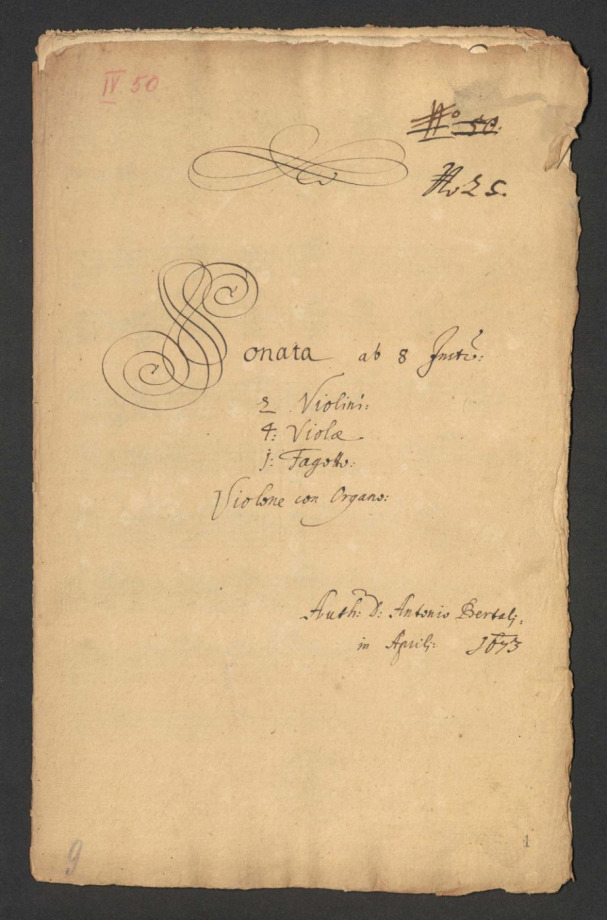 IV 50
No 50.
No 25.
Sonata ab 8 Instr:
2 Violini:
4: Violæ
1: Fagotto:
Violone con Organo:
Auth: D: Antonio Bertalj,
in Aprilj: 1673
9
1